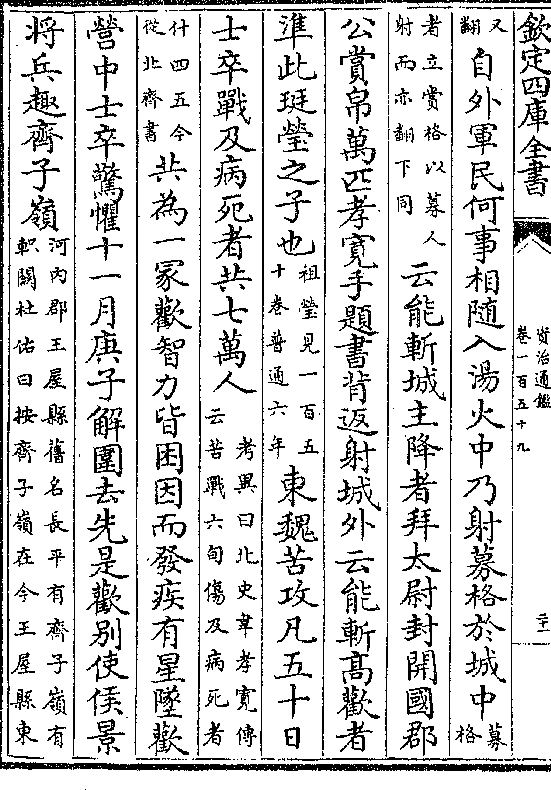 欽定四庫全書
資治通鑑
卷一百五十九
二十一
又
翻
自外軍民何事相隨入湯火中乃射募格於城中
募
格
者立賞格以募人
射而亦翻下同
云能斬城主降者拜太尉封開國郡
公賞帛萬匹孝寛手題書背返射城外云能斬髙歡者
準此珽瑩之子也
祖瑩見一百五
十卷普通六年
東魏苦攻凡五十日
士卒戰及病死者共七萬人
考異曰北史韋孝寛傳
云苦戰六旬傷及病死者
什四五今
從北齊書
共為一冡歡智力皆困因而發疾有星墜歡
營中士卒驚懼十一月庚子解圍去先是歡别使侯景
將兵趣齊子嶺
河内郡王屋縣舊名長平有齊子嶺有
軹關杜佑曰按齊子嶺在今王屋縣東